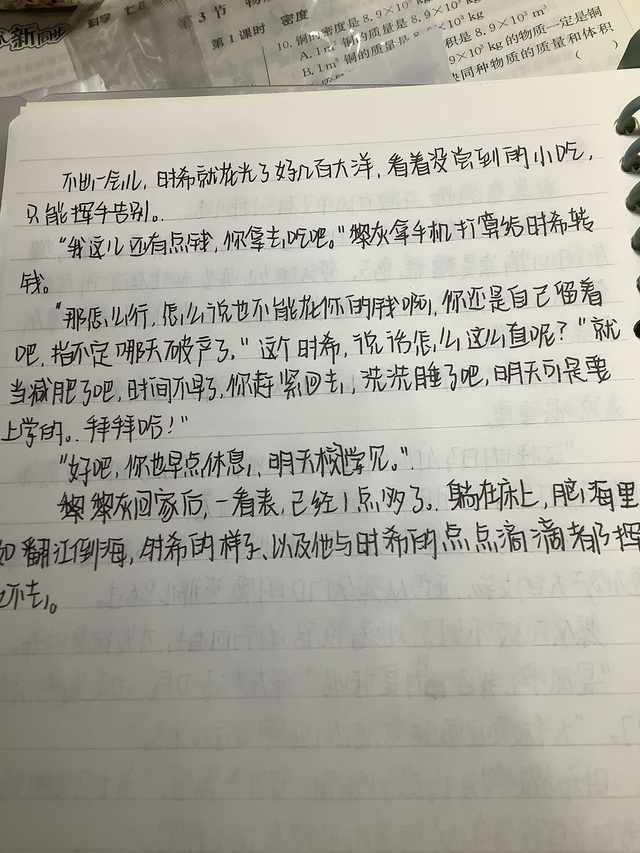 科学 七
第3节 物
第1课时 密度
10. 铜的密度是8.9×10³
A. 1 m³ 铜的质量是8.9×10³ kg
B. 1 m³ 铜的质量是
积是8.9×10³ m³
9×10³ kg的物质一定是铜
同种物质的质量和体积
( )
不出一会儿，时希就花光了好几百大洋，看着没尝到的小吃，
只能挥手告别。
“我这儿还有点钱，你拿去吃吧。”黎灰拿手机打算给时希转
钱。
“那怎么行，怎么说也不能花你的钱啊，你还是自己留着
吧，指不定哪天破产了。”这个时希，说话怎么这么直呢？“就
当减肥了吧，时间不早了，你赶紧回去，洗洗睡了吧，明天可是要
上学的。拜拜哈！”
“好吧，你也早点休息，明天校学见。”
黎灰回家后，一看表，已经1点多了。躺在床上，脑海里
如翻江倒海，时希的样子、以及他与时希的点点滴滴都挥
不去。